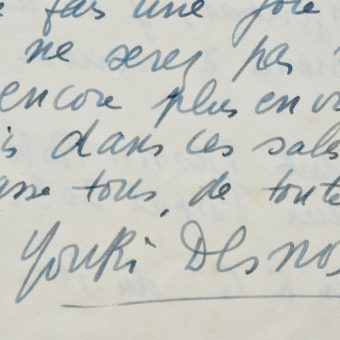 fais une joie
ne serez pas
encore plus en v
is dans ces sales
asse tous, de toute
Youki Desnos